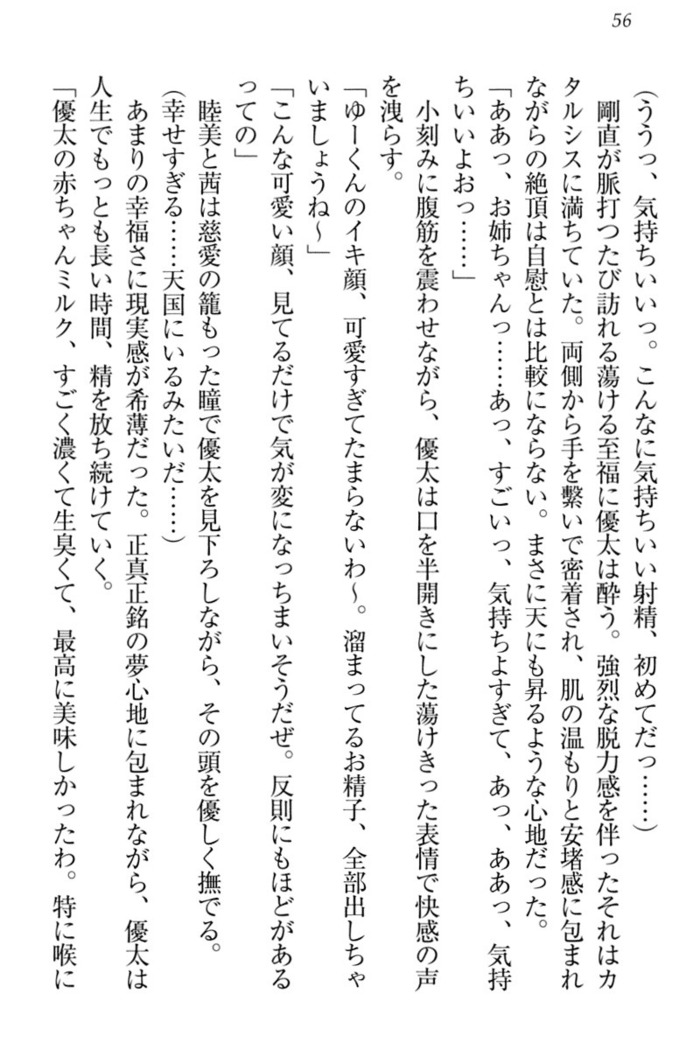 56
(ううっ、気持ちいいっ。こんなに気持ちいい射精、初めてだっ……)
剛直が脈打つたび訪れる蕩ける至福に優太は酔う。強烈な脱力感を伴ったそれはカ
タルシスに満ちていた。両側から手を繋いで密着され、肌の温もりと安堵感に包まれ
ながらの絶頂は自慰とは比較にならない。まさに天にも昇るような心地だった。
「ああっ、お姉ちゃんっ……あっ、すごいっ、気持ちよすぎて、あっ、ああっ、気持
ちいいよおっ……」
小刻みに腹筋を震わせながら、優太は口を半開きにした蕩けきった表情で快感の声
を洩らす。
「ゆーくんのイキ顔、可愛すぎてたまらないわ～。溜まってるお精子、全部出しちゃ
いましょうね～」
「こんな可愛い顔、見てるだけで気が変になっちまいそうだぜ。反則にもほどがある
っての」
睦美と茜は慈愛の籠もった瞳で優太を見下ろしながら、その頭を優しく撫でる。
(幸せすぎる……天国にいるみたいだ……)
あまりの幸福さに現実感が希薄だった。正真正銘の夢心地に包まれながら、優太は
人生でもっとも長い時間、精を放ち続けていく。
「優太の赤ちゃんミルク、すごく濃くて生臭くて、最高に美味しかったわ。特に喉に